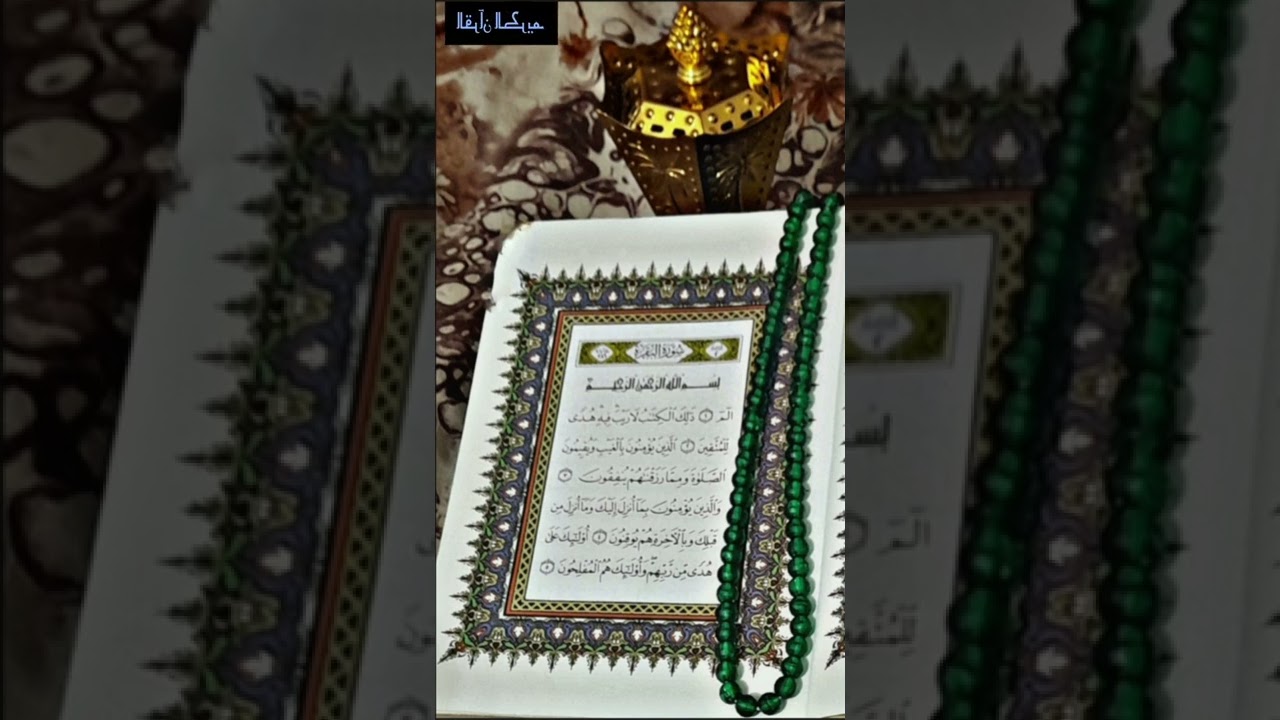 القرآن الكريم
سورة البقرة
بسم الله الرحمن الرحيم
الٓمٓ ١ ذَٰلِكَ ٱلْكِتَٰبُ لَا رَيْبَ فِيهِ هُدًى
لِّلْمُتَّقِينَ ٢ ٱلَّذِينَ يُؤْمِنُونَ بِٱلْغَيْبِ وَيُقِيمُونَ
ٱلصَّلَوٰةَ وَمِمَّا رَزَقْنَٰهُمْ يُنفِقُونَ ٣
وَٱلَّذِينَ يُؤْمِنُونَ بِمَآ أُنزِلَ إِلَيْكَ وَمَآ أُنزِلَ مِن
قَبْلِكَ وَبِٱلْأَخِرَةِ هُمْ يُوقِنُونَ ٤ أُو۟لَٰٓئِكَ عَلَىٰ
هُدًى مِّن رَّبِّهِمْ وَأُو۟لَٰٓئِكَ هُمُ ٱلْمُفْلِحُونَ ٥